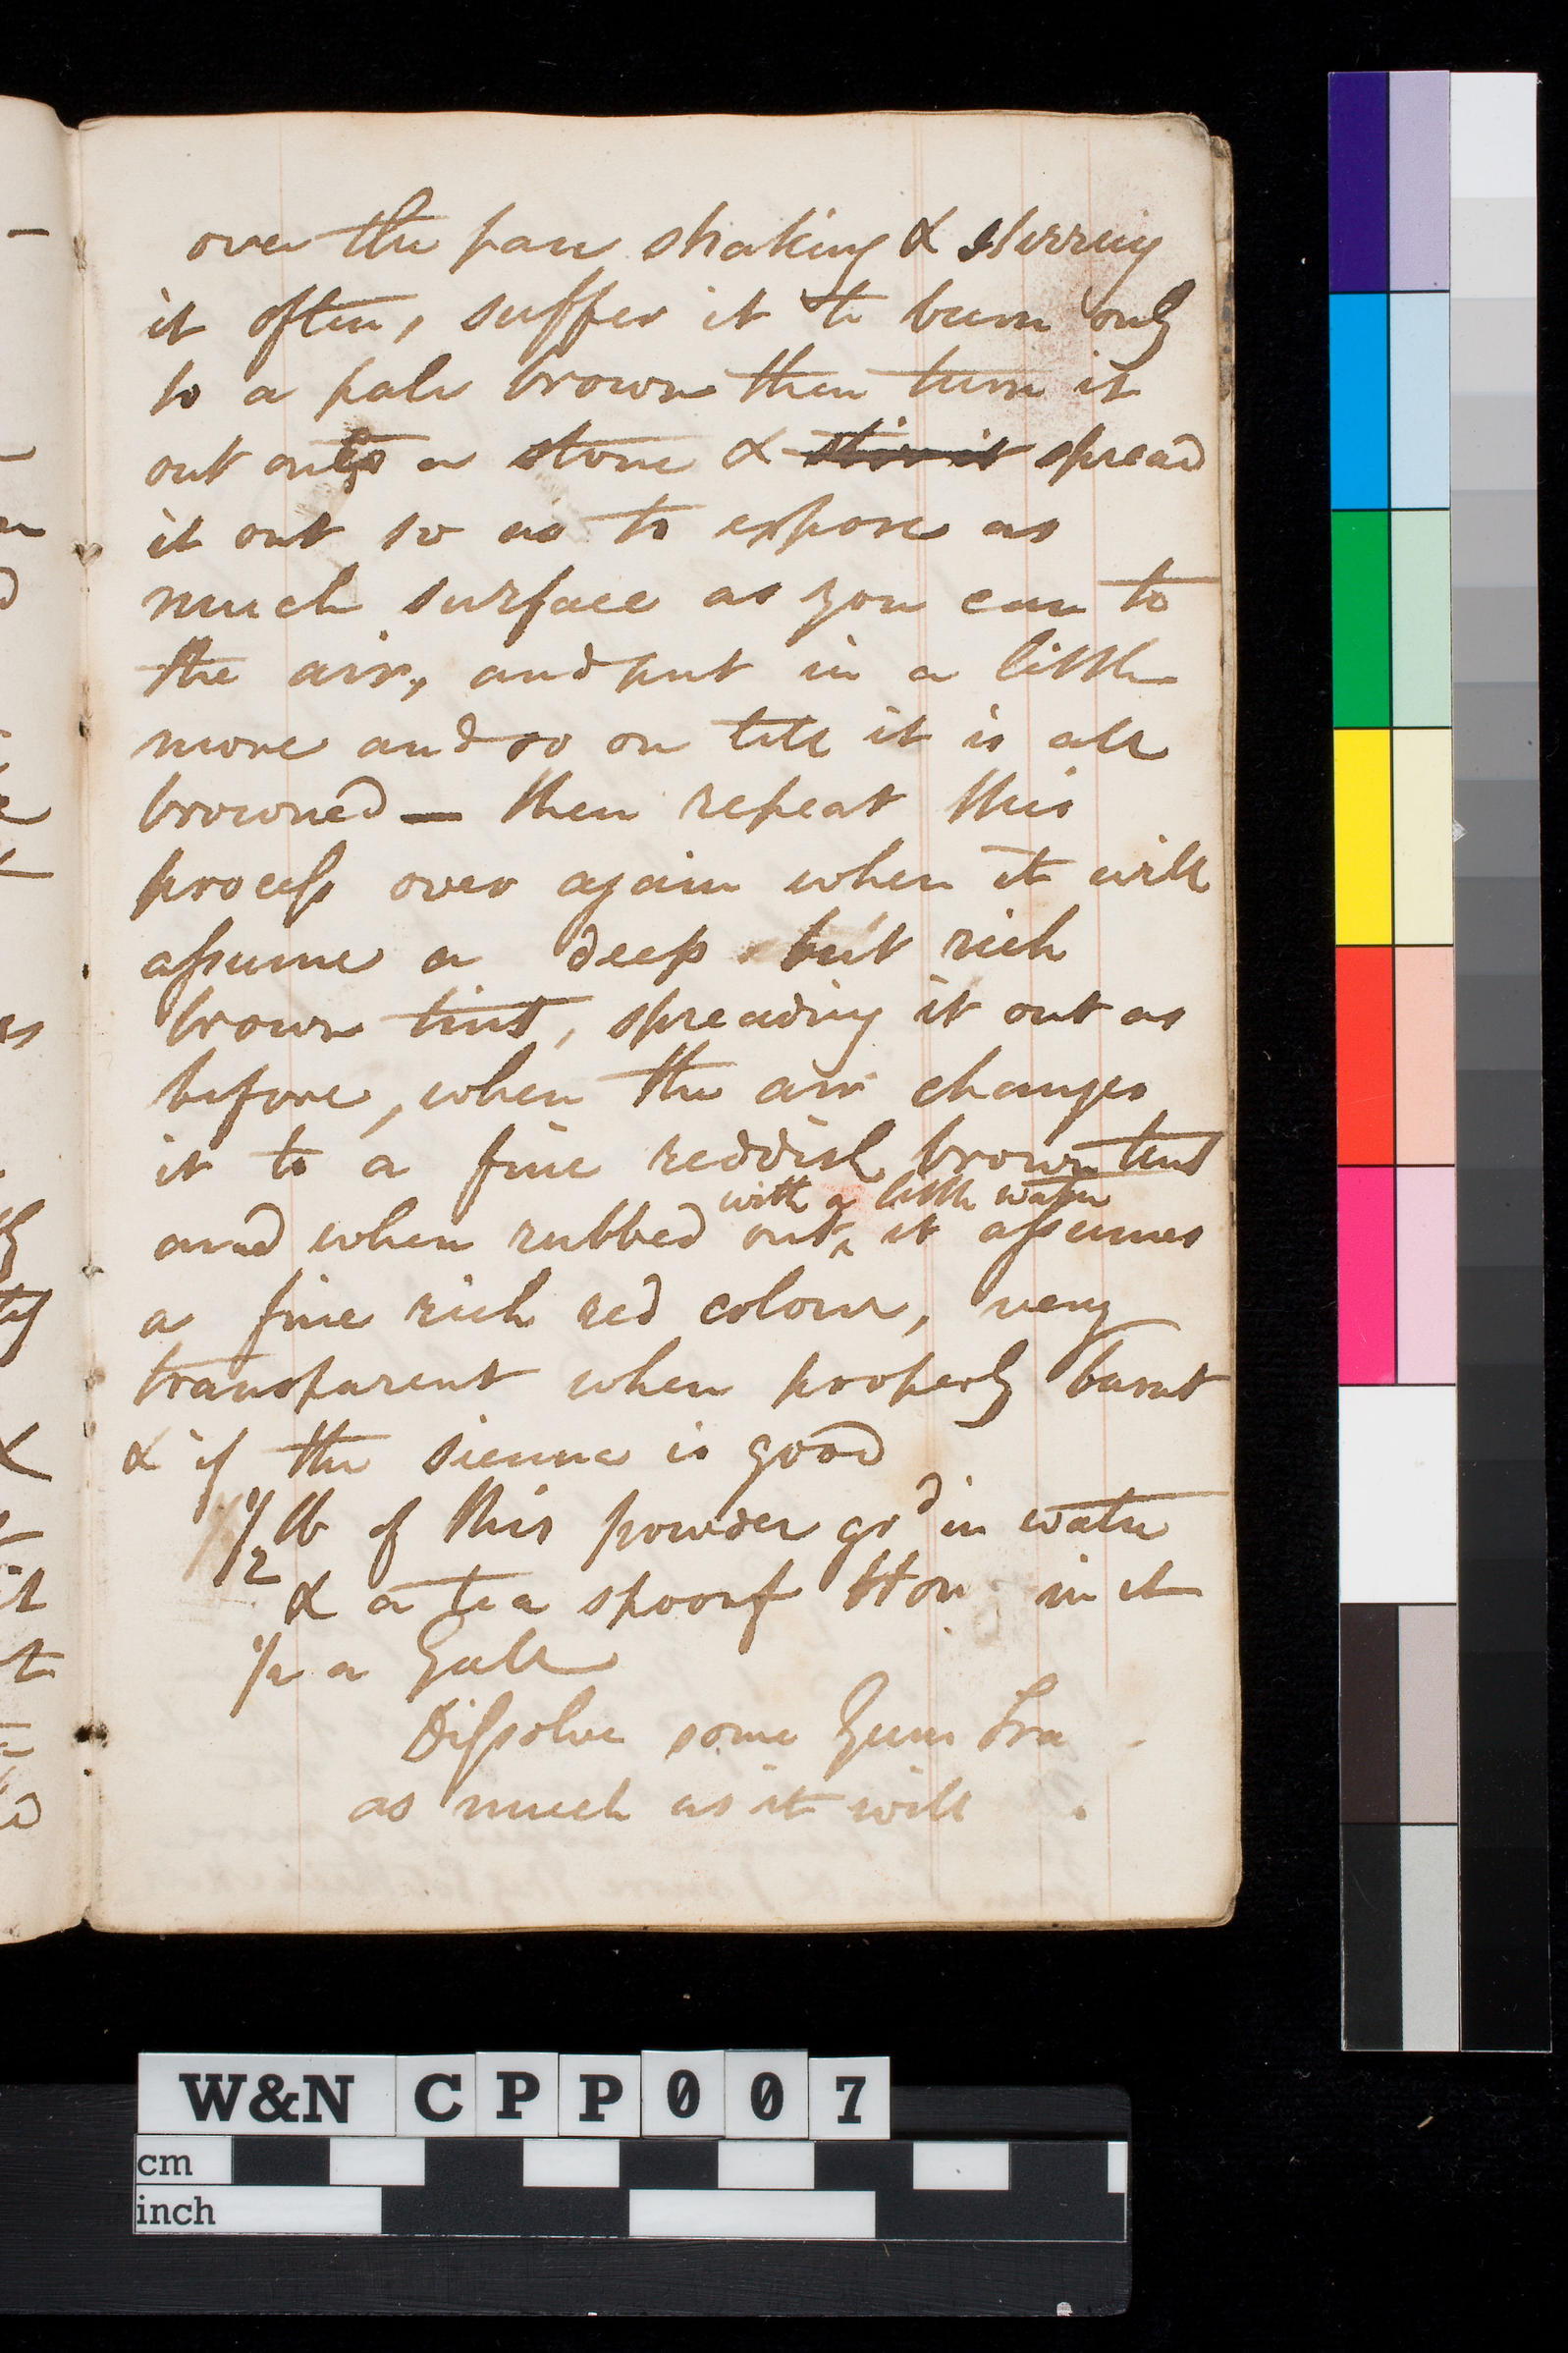 over the pan shaking & stirring
it often, suffer it to burn only
to a pale brown then turn it
out onto a stone & stir it spread
it out so as to expose as
much surface as you can to
the air, and put in a little
more and so on till it is all
browned — then repeat this
process over again when it will
assume a deep but rich
brown tint, spreading it out as
before, when the air changes
it to a fine reddish brown tint
with a little water
and when rubbed out ‸ it assumes
a fine rich red colour, very
transparent when properly burnt
& if the sienna is good
1/2 lb of this powder grd in water
& a tea spoonf Hon in it
1/2 a Gall
Dissolve some Gum Tra
as much as it will
W&N CPP007
cm
inch